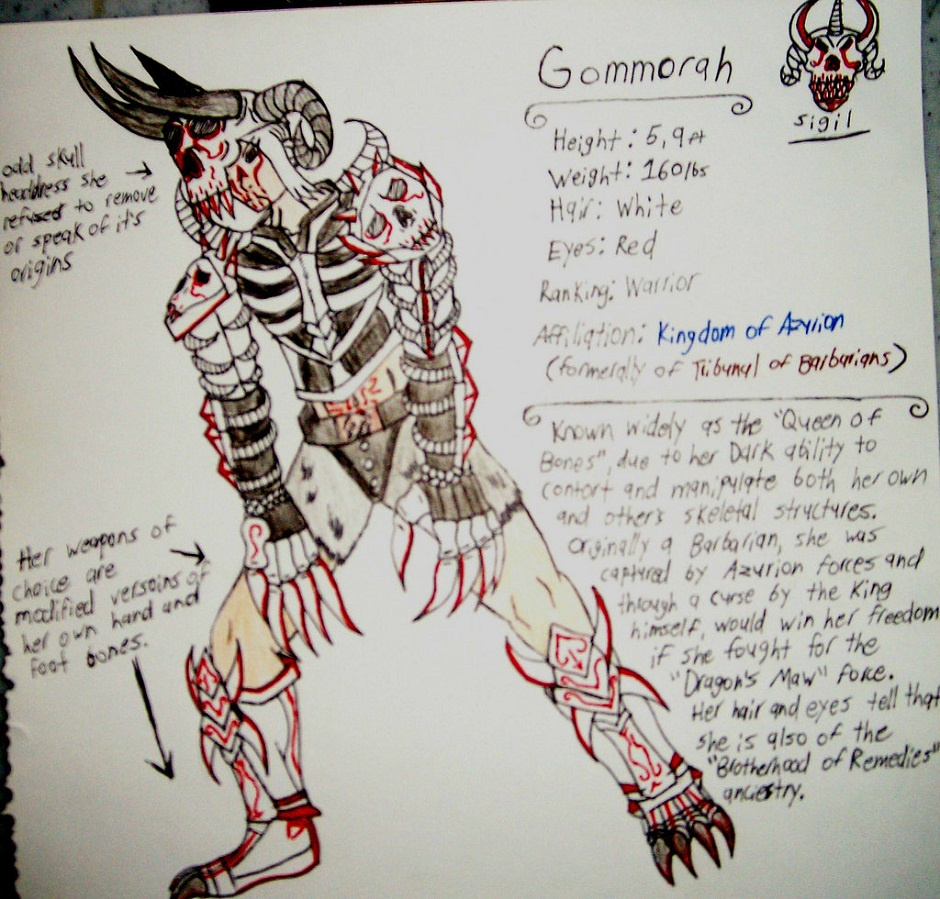 Gommorah
sigil
Height: 5,9 ft
Weight: 160lbs
Hair: White
Eyes: Red
Ranking: Warrior
Affiliation: Kingdom of Azyrion
(formerally of Tribunal of Barbarians)
Known widely as the "Queen of
Bones", due to her Dark ability to
contort and manipulate both her own
and other's skeletal structures.
Orginally a Barbarian, she was
captured by Azyrion forces and
through a curse by the King
himself, would win her freedom
if she fought for the
"Dragon's Maw" force.
Her hair and eyes tell that
she is also of the
"Brotherhood of Remedies"
ancestry.
odd skull
headdress she
refused to remove
or speak of it's
origins
Her weapons of
choice are
modified versoins of
her own hand and
foot bones.